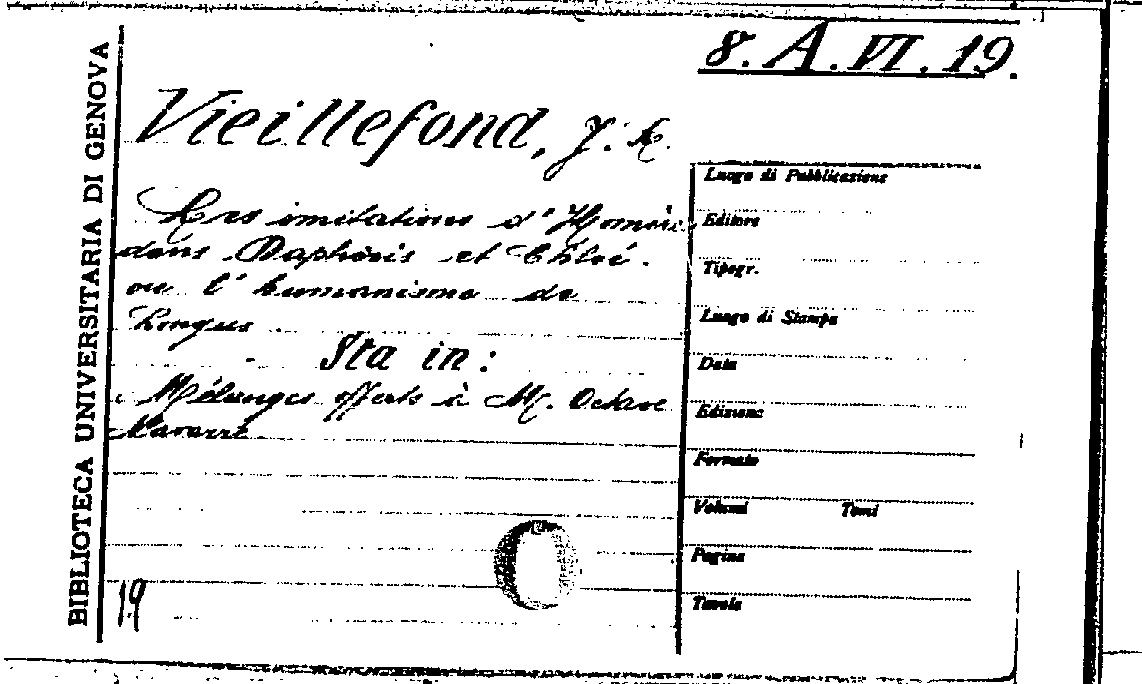 8. A. VI. 19.
BIBLIOTECA UNIVERSITARIA DI GENOVA
Vieillefond, J. R.
Les imitations d'Homère
dans Daphnis et Chloé.
ou l'humanisme de
Longus
Sta in:
Mélanges offerts à M. Octave
Navarre
19
Luogo di Pubblicazione
Editore
Tipogr.
Luogo di Stampa
Data
Edizione
Formato
Volumi Tomi
Pagine
Tavole